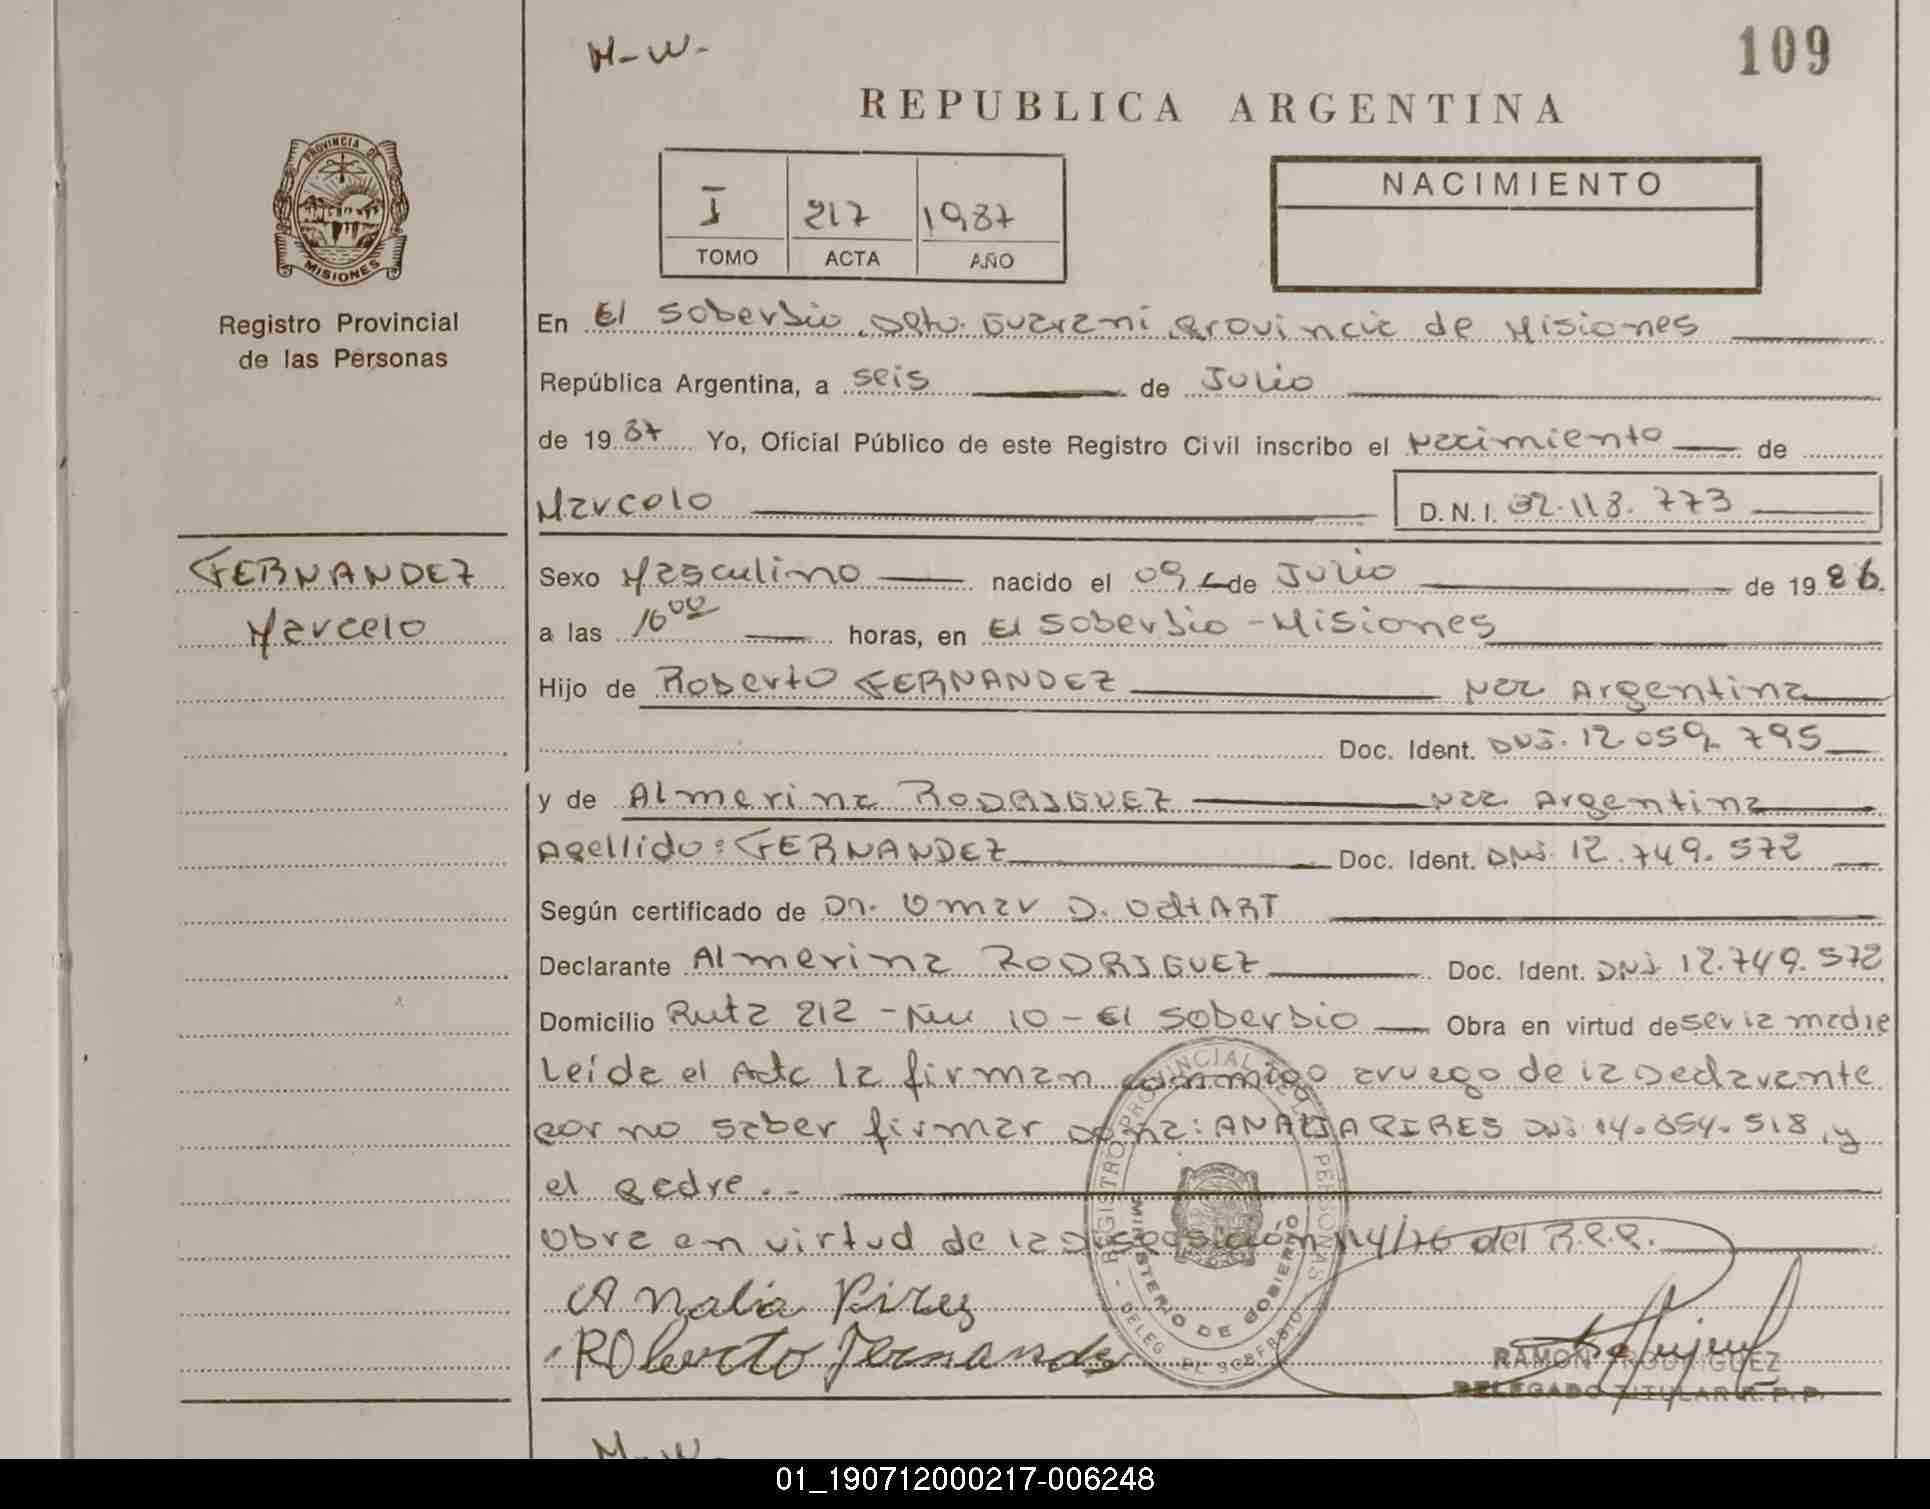 M-W-
109
REPUBLICA ARGENTINA
PROVINCIA DE
MISIONES
Registro Provincial
de las Personas
I 217 1987
TOMO ACTA AÑO
NACIMIENTO
En El Soberbio, Dpto. Guarani, Provincia de Misiones
República Argentina, a seis de Julio
de 1987 Yo, Oficial Público de este Registro Civil inscribo el Nacimiento de
Marcelo D.N.I. 32.118.773
FERNANDEZ
Marcelo
Sexo Masculino nacido el 09 de Julio de 1986.
a las 16 00 horas, en El Soberbio - Misiones
Hijo de Roberto FERNANDEZ Nac Argentina
Doc. Ident. DNI. 12.059.795
y de Almerina RODRIGUEZ Nac. Argentina
Apellido: FERNANDEZ Doc. Ident. DNI. 12.749.572
Según certificado de Dr. Omar D.
Declarante Almerina RODRIGUEZ Doc. Ident. DNI 12.749.572
Domicilio Ruta 212 - Km 10 - El Soberbio Obra en virtud de ser la madre
Leída el Acta la firman conmigo a ruego de la Declarante
por no saber firmar doña: ANALIA PIRES DNI 14.654.518, y
el padre.-
Obra en virtud de la Disposición 114/76 del R.P.P.
Analia Pires
Roberto Fernande
REGISTRO PROVINCIAL DE LAS PERSONAS
MINISTERIO DE GOBIERNO
DELEG. EL SOBERBIO
RAMON RODRIGUEZ
DELEGADO TITULAR R.P.P.
M-W-
01_190712000217-006248